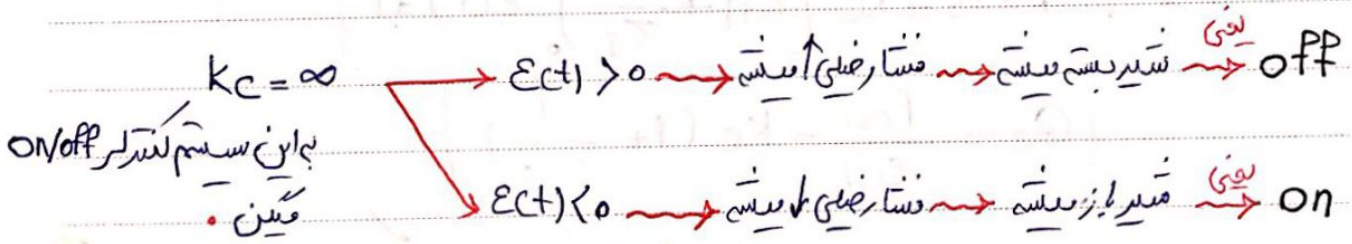 Kc = ∞
به این سیستم کنترلر on/off میگن.
ε(t) > 0 ⟿ فشار خیلی ↑ میشه ⟿ شیر بسته میشه ⟿ یعنی off
ε(t) < 0 ⟿ فشار خیلی ↓ میشه ⟿ شیر باز میشه ⟿ یعنی on